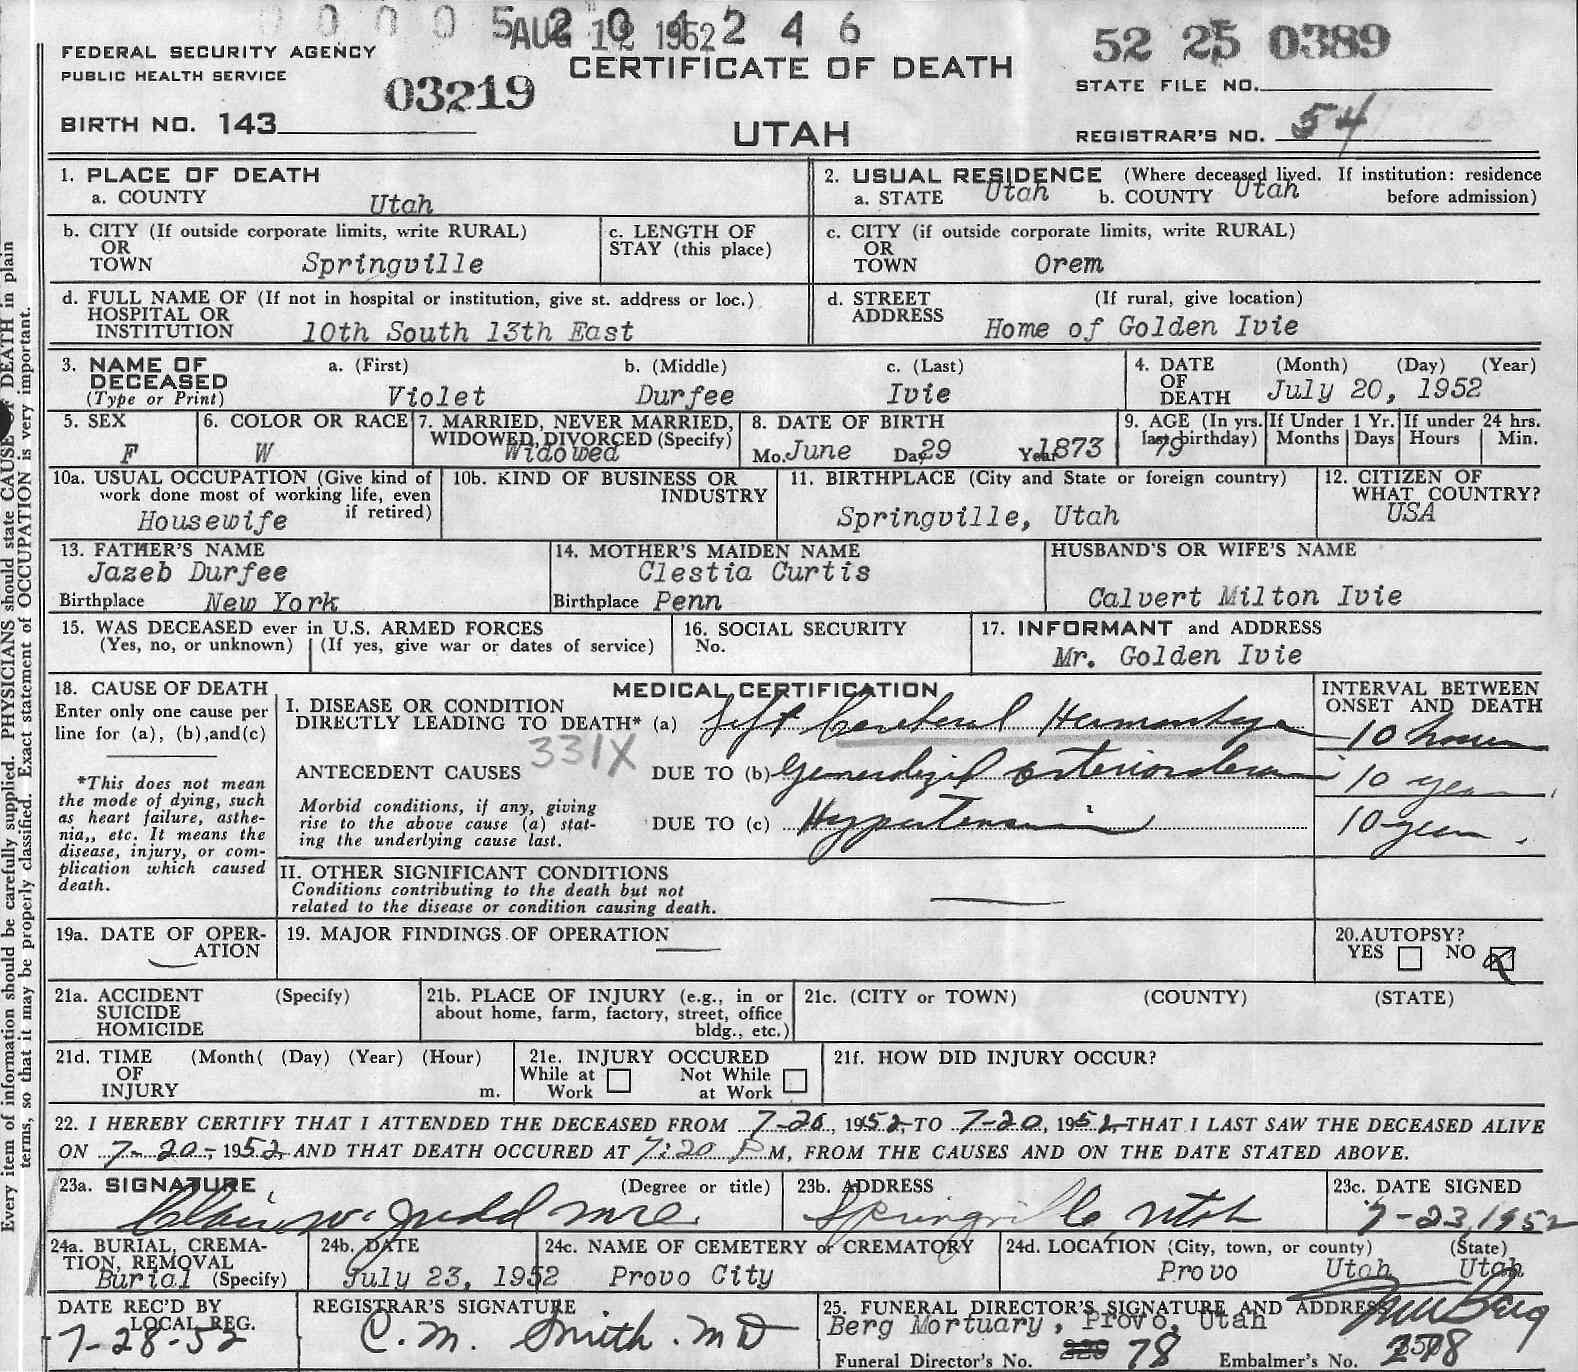 0 0 0 0 5 2 0 1 2 4 6
AUG 12 1952
52 25 0389
FEDERAL SECURITY AGENCY
PUBLIC HEALTH SERVICE
03219
CERTIFICATE OF DEATH
STATE FILE NO.
BIRTH NO. 143
UTAH
REGISTRAR'S NO. 54
1. PLACE OF DEATH
a. COUNTY Utah
2. USUAL RESIDENCE (Where deceased lived. If institution: residence before admission)
a. STATE Utah b. COUNTY Utah
b. CITY (If outside corporate limits, write RURAL)
OR
TOWN Springville
c. LENGTH OF
STAY (this place)
c. CITY (if outside corporate limits, write RURAL)
OR
TOWN Orem
d. FULL NAME OF (If not in hospital or institution, give st. address or loc.)
HOSPITAL OR
INSTITUTION 10th South 13th East
d. STREET (If rural, give location)
ADDRESS Home of Golden Ivie
3. NAME OF
DECEASED
(Type or Print)
a. (First) b. (Middle) c. (Last)
Violet Durfee Ivie
4. DATE (Month) (Day) (Year)
OF
DEATH July 20, 1952
5. SEX
F
6. COLOR OR RACE
W
7. MARRIED, NEVER MARRIED,
WIDOWED, DIVORCED (Specify)
Widowed
8. DATE OF BIRTH
Mo. June Da. 29 Year 1873
9. AGE (In yrs. last birthday)
79
If Under 1 Yr.
Months Days
If under 24 hrs.
Hours Min.
10a. USUAL OCCUPATION (Give kind of
work done most of working life, even
if retired)
Housewife
10b. KIND OF BUSINESS OR
INDUSTRY
11. BIRTHPLACE (City and State or foreign country)
Springville, Utah
12. CITIZEN OF
WHAT COUNTRY?
USA
13. FATHER'S NAME
Jazeb Durfee
Birthplace New York
14. MOTHER'S MAIDEN NAME
Clestia Curtis
Birthplace Penn
HUSBAND'S OR WIFE'S NAME
Calvert Milton Ivie
15. WAS DECEASED ever in U.S. ARMED FORCES
(Yes, no, or unknown) (If yes, give war or dates of service)
16. SOCIAL SECURITY
No.
17. INFORMANT and ADDRESS
Mr. Golden Ivie
18. CAUSE OF DEATH
Enter only one cause per
line for (a), (b), and (c)
*This does not mean
the mode of dying, such
as heart failure, asthe-
nia,, etc. It means the
disease, injury, or com-
plication which caused
death.
MEDICAL CERTIFICATION
I. DISEASE OR CONDITION
DIRECTLY LEADING TO DEATH* (a) Left Cerebral Hemorrhage
331X
ANTECEDENT CAUSES DUE TO (b) Generalized arteriosclerosis
Morbid conditions, if any, giving
rise to the above cause (a) stat-
ing the underlying cause last.
DUE TO (c) Hypertension
INTERVAL BETWEEN
ONSET AND DEATH
10 hours
10 years
10 years
II. OTHER SIGNIFICANT CONDITIONS
Conditions contributing to the death but not
related to the disease or condition causing death.
19a. DATE OF OPER-
ATION
19. MAJOR FINDINGS OF OPERATION
20. AUTOPSY?
YES NO X
21a. ACCIDENT (Specify)
SUICIDE
HOMICIDE
21b. PLACE OF INJURY (e.g., in or
about home, farm, factory, street, office
bldg., etc.)
21c. (CITY or TOWN) (COUNTY) (STATE)
21d. TIME (Month( (Day) (Year) (Hour)
OF
INJURY m.
21e. INJURY OCCURED
While at Work Not While at Work
21f. HOW DID INJURY OCCUR?
22. I HEREBY CERTIFY THAT I ATTENDED THE DECEASED FROM 7-20, 1952, TO 7-20, 1952, THAT I LAST SAW THE DECEASED ALIVE
ON 7-20-, 1952, AND THAT DEATH OCCURED AT 7:20 P M, FROM THE CAUSES AND ON THE DATE STATED ABOVE.
23a. SIGNATURE (Degree or title)
Clair W. Judd M.D.
23b. ADDRESS
Springville Utah
23c. DATE SIGNED
7-23, 1952
24a. BURIAL, CREMA-
TION, REMOVAL
Burial (Specify)
24b. DATE
July 23, 1952
24c. NAME OF CEMETERY or CREMATORY
Provo City
24d. LOCATION (City, town, or county) (State)
Provo Utah Utah
DATE REC'D BY
LOCAL REG.
7-28-52
REGISTRAR'S SIGNATURE
C. M. Smith. MD
25. FUNERAL DIRECTOR'S SIGNATURE AND ADDRESS
Berg Mortuary, Provo, Utah
Funeral Director's No. 78 Embalmer's No.
Every item of information should be carefully supplied. PHYSICIANS should state CAUSE OF DEATH in plain
terms, so that it may be properly classified. Exact statement of OCCUPATION is very important.